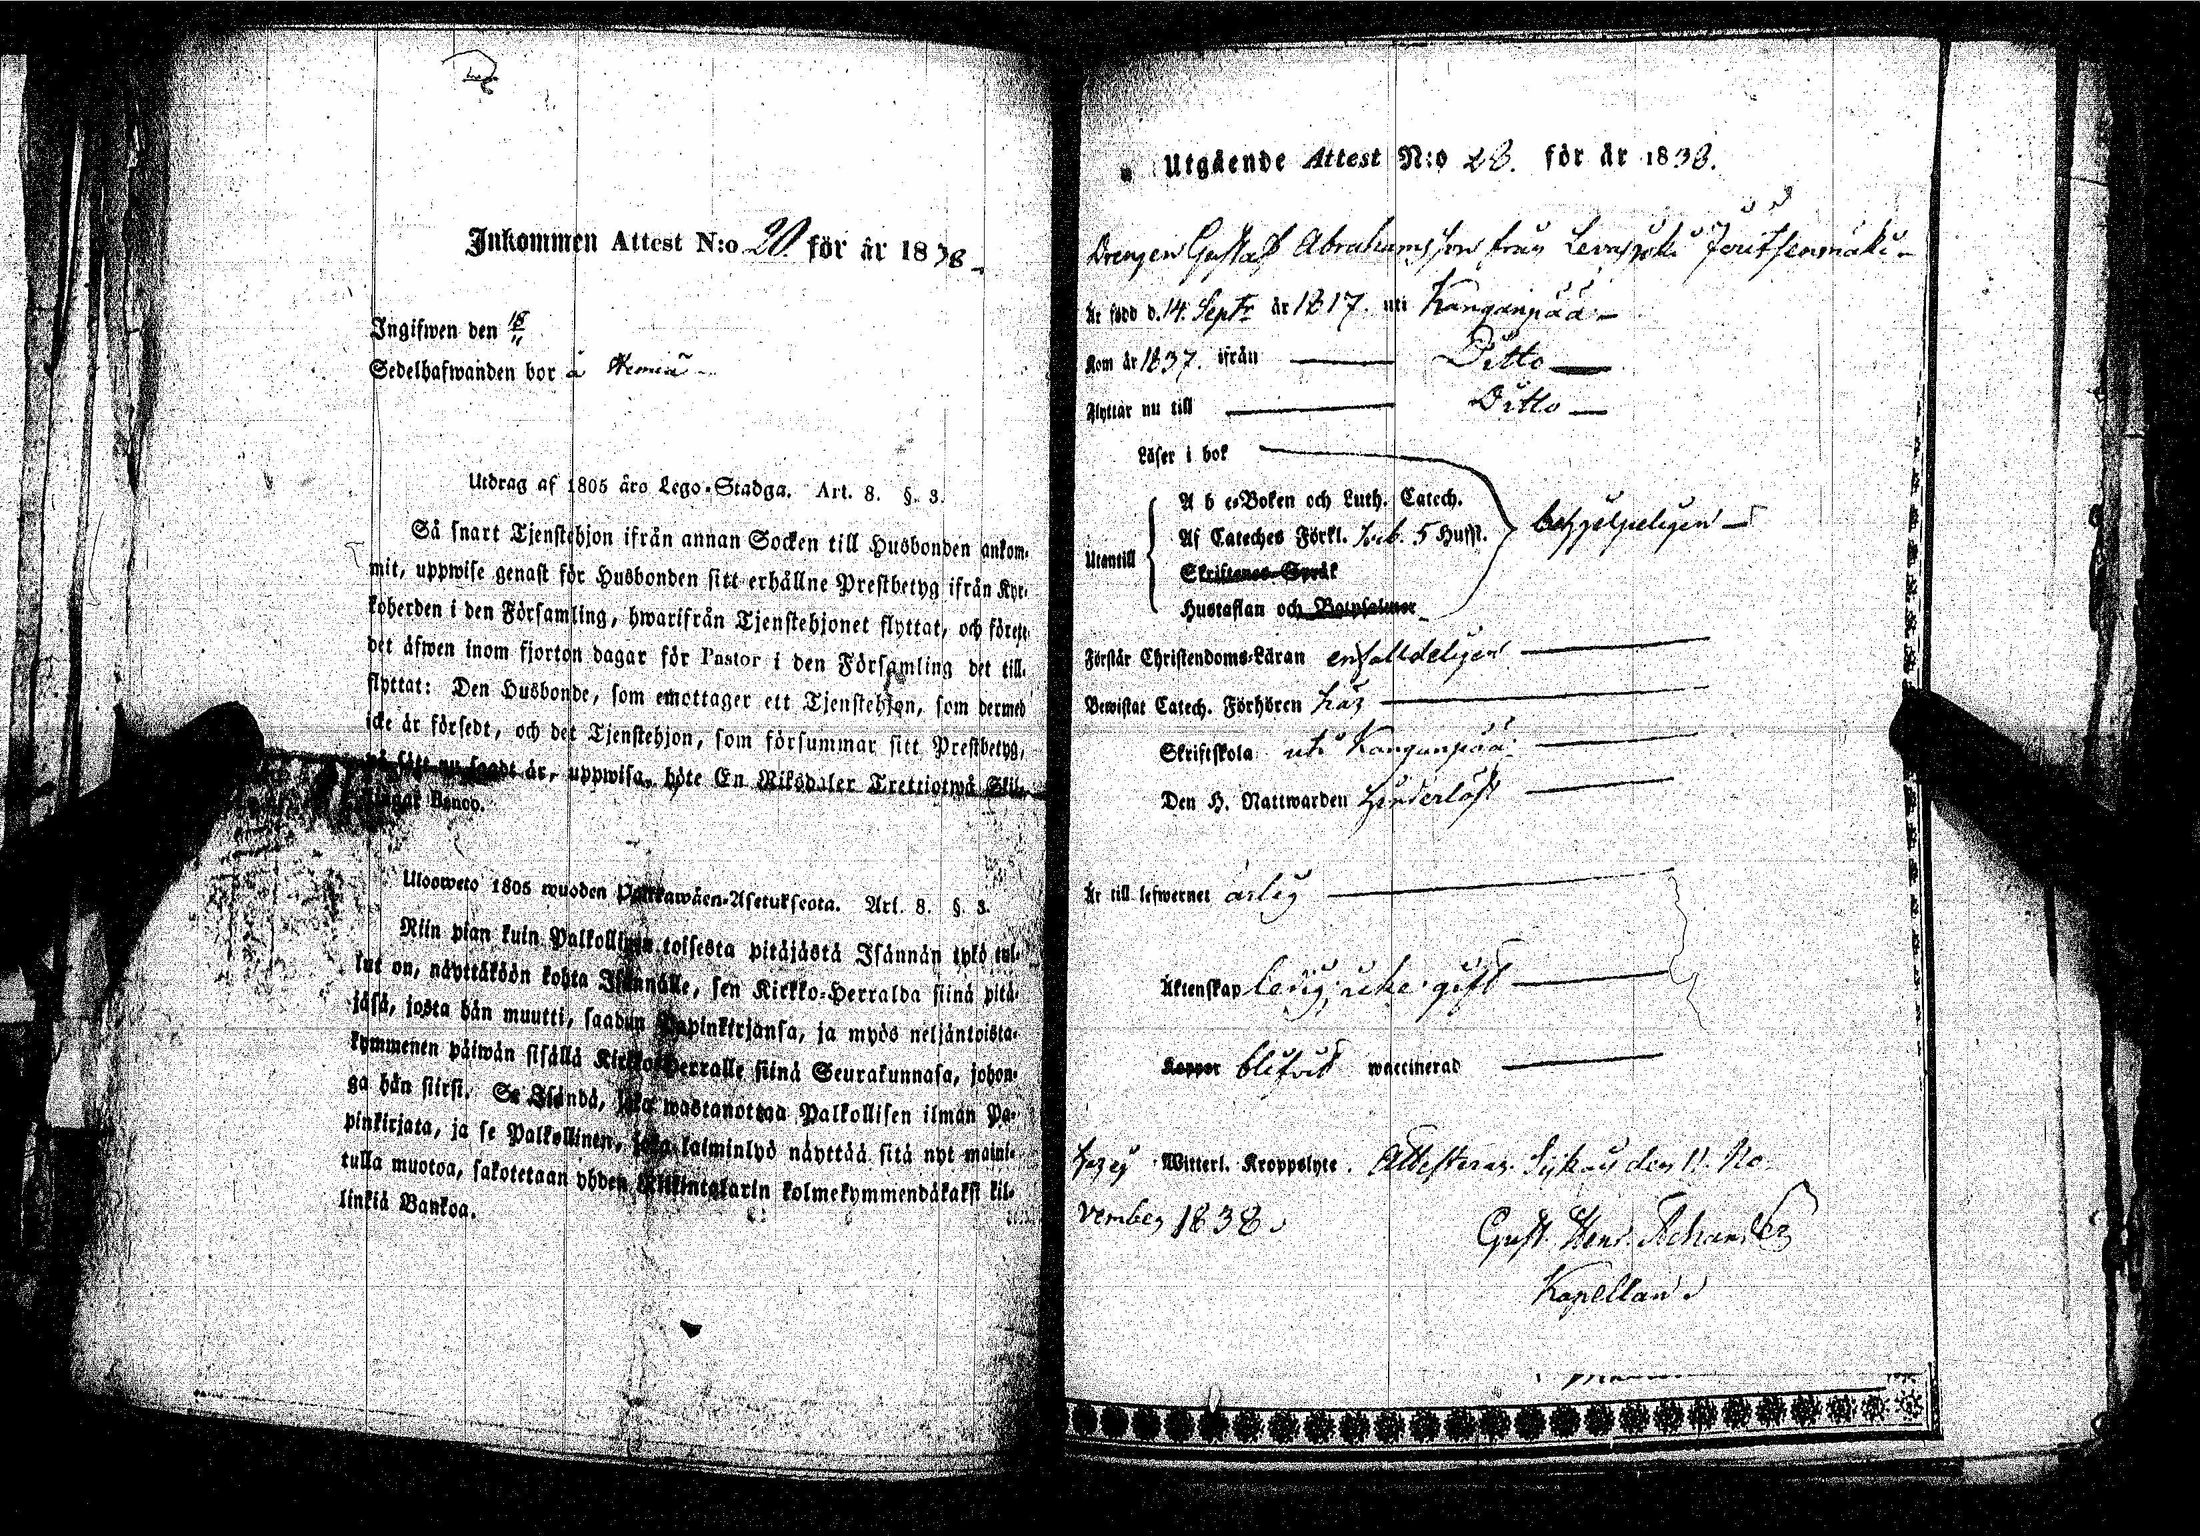 Inkommen Attest N:o 20. för år 1838
Ingifwen den 18/11
Sedelhafwanden bor å Niemiä
Utdrag af 1805 års Lego-Stadga. Art. 8. §. 3.
Så snart Tjenstehjon ifrån annan Socken till Husbonden ankom-
mit, uppwise genast för Husbonden sitt erhållne Prestbetyg ifrån Kyr-
koherden i den Församling, hwarifrån Tjenstehjonet flyttat, och förete
det äfwen inom fjorton dagar för Pastor i den Församling det till-
flyttat: Den Husbonde, som emottager ett Tjenstehjon, som dermed
icke är försedt, och det Tjenstehjon, som försummar sitt Prestbetyg,
på sätt nu sagdt är, uppwisa, böte En Riksdaler Trettiotwå Skil-
lingar Banco.
Ulosweto 1805 wuoden Palkkawäen-Asetuksesta. Art. 8. §. 3.
Niin pian kuin Palkollinen toisesta pitäjästä Isännän tykö tul-
lut on, näyttäköön kohta Isännälle, sen Kirkko-Herralda siinä pitä-
jäsä, josta hän muutti, saadun Papinkirjansa, ja myös neljäntoista-
kymmenen päiwän sisällä Kirkko-Herralle siinä Seurakunnasa, johon-
ga hän siirsi. Se Isändä, joka wastanottaa Palkollisen ilman Pa-
pinkirjata, ja se Palkollinen, joka laiminlyö näyttää sitä nyt maini-
tulla muotoa, sakotetaan yhden Riikintalarin kolmekymmendäkaksi kil-
linkiä Bankoa.
Utgående Attest N:o 28. för år 1838.
Drengen Gustaf Abrahamsson från Levaspoki Jouttenmäki
Är född d. 14. Sept: år 1817. uti Kanganpää
Kom år 1837. ifrån Ditto
Flyttar nu till Ditto
Läser i bok
Utantill
A b c-Boken och Luth. Catech.
Af Cateches Förkl. 5 Husst.
Skriftenes Språk
Hustaflan och Botpsalmer
Förstår Christendoms-Läran enfalldeligen
Bewistat Catech. Förhören
Skriftskola uti Kanganpää
Den H. Nattwarden hinderlöst
Är till lefwernet ärlig
Äktenskap ledig, icke gift
Koppor blifvit waccinerad
Witterl. Kroppslyte. Attesterar. den 11. No-
vember 1838.
Gust. Henr.
Kapellan